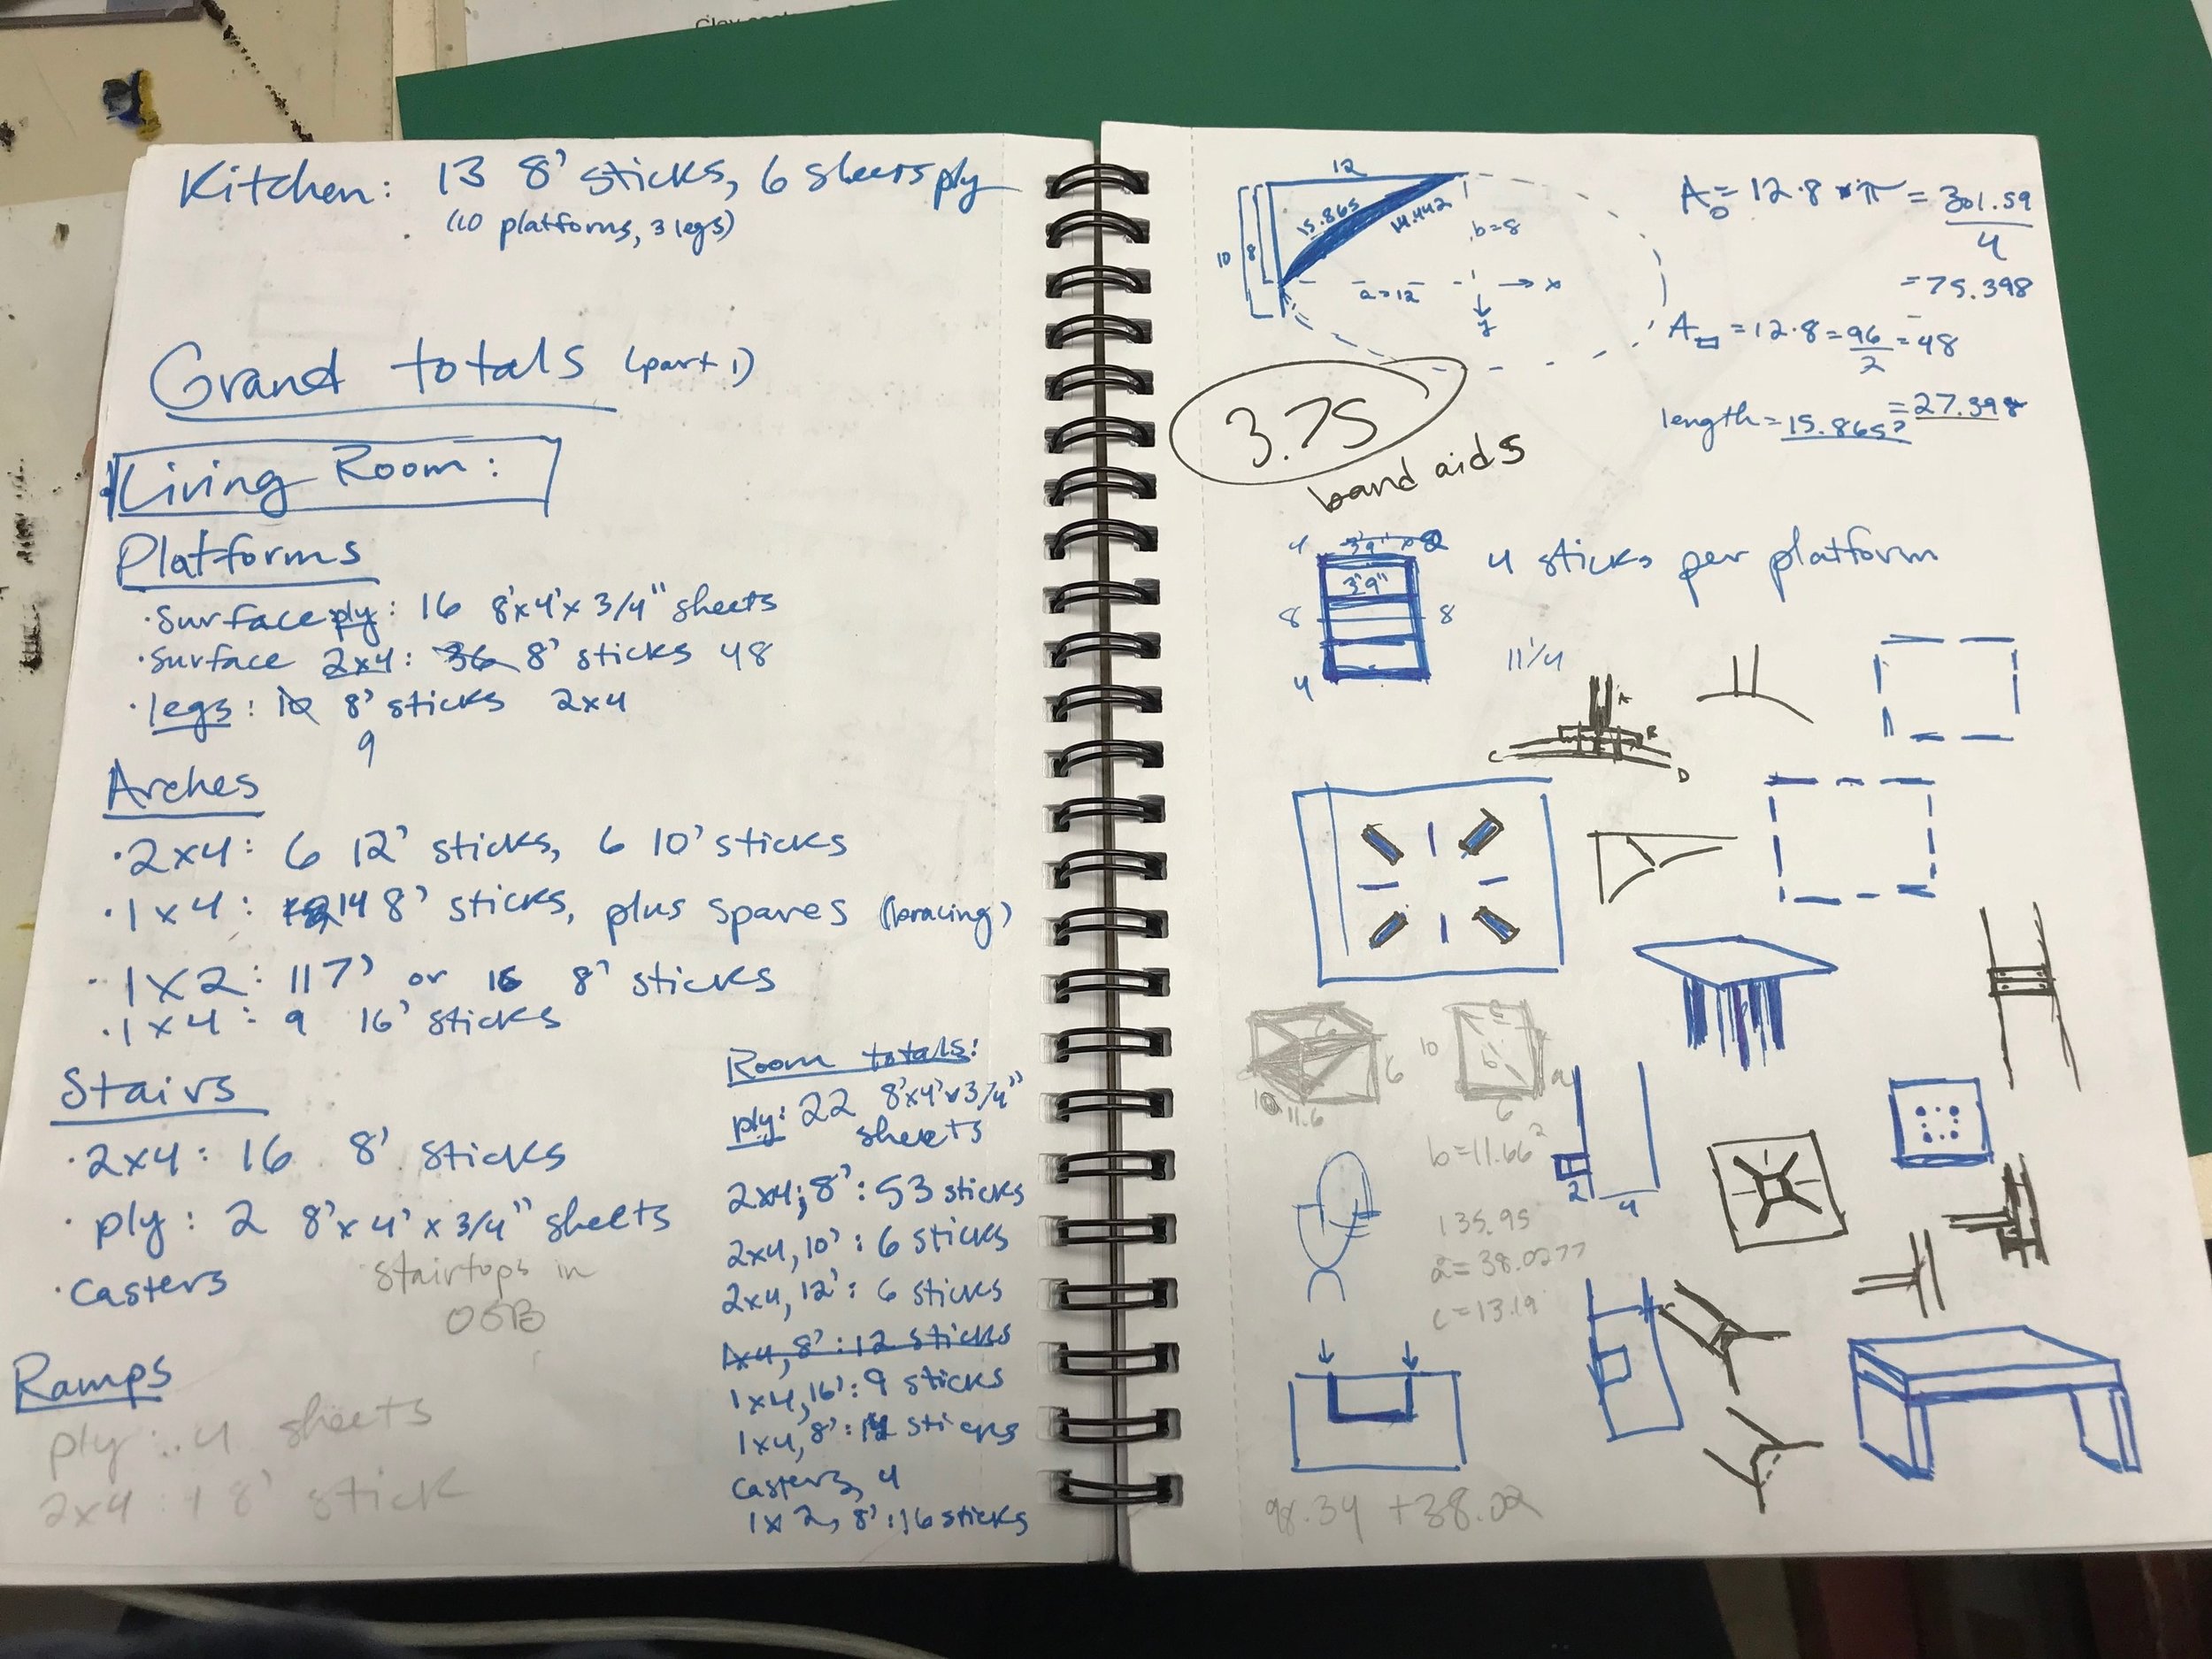 Kitchen: 13 8' sticks, 6 sheets ply
(10 platforms, 3 legs)
Grand totals (part 1)
Living Room:
Platforms
· Surface ply: 16 8'x4'x3/4" sheets
· Surface 2x4: 36 8' sticks 48
· legs: 10 8' sticks 2x4
9
Arches
· 2x4: 6 12' sticks, 6 10' sticks
· 1x4: 14 8' sticks, plus spares (bracing)
· 1x2: 117' or 16 8' sticks
· 1x4: 9 16' sticks
Stairs
· 2x4: 16 8' sticks
· ply: 2 8'x4'x3/4" sheets
· casters
stairtops in
OSB
Ramps
ply: 4 sheets
2x4: 1 8' stick
Room totals:
ply: 22 8'x4'x3/4"
sheets
2x4, 8': 53 sticks
2x4, 10': 6 sticks
2x4, 12': 6 sticks
1x4, 8': 12 sticks
1x4, 16': 9 sticks
1x4, 8': sticks
casters, 4
1x2, 8': 16 sticks
12
15.865
14.442
10
8
b=8
a=12
x
y
A = 12·8 π = 301.59
4
= 75.398
A = 12·8 = 96 = 48
2
= 27.398
length = 15.865?
3.75
band aids
4 3'9"
3'9"
8 8
4
4 sticks per platform
11 1/4
A
B
C
D
6
10
11.6
10
b
a
6
b=11.66²
135.95
a=38.0277
c=13.19
2
4
98.34 + 38.02